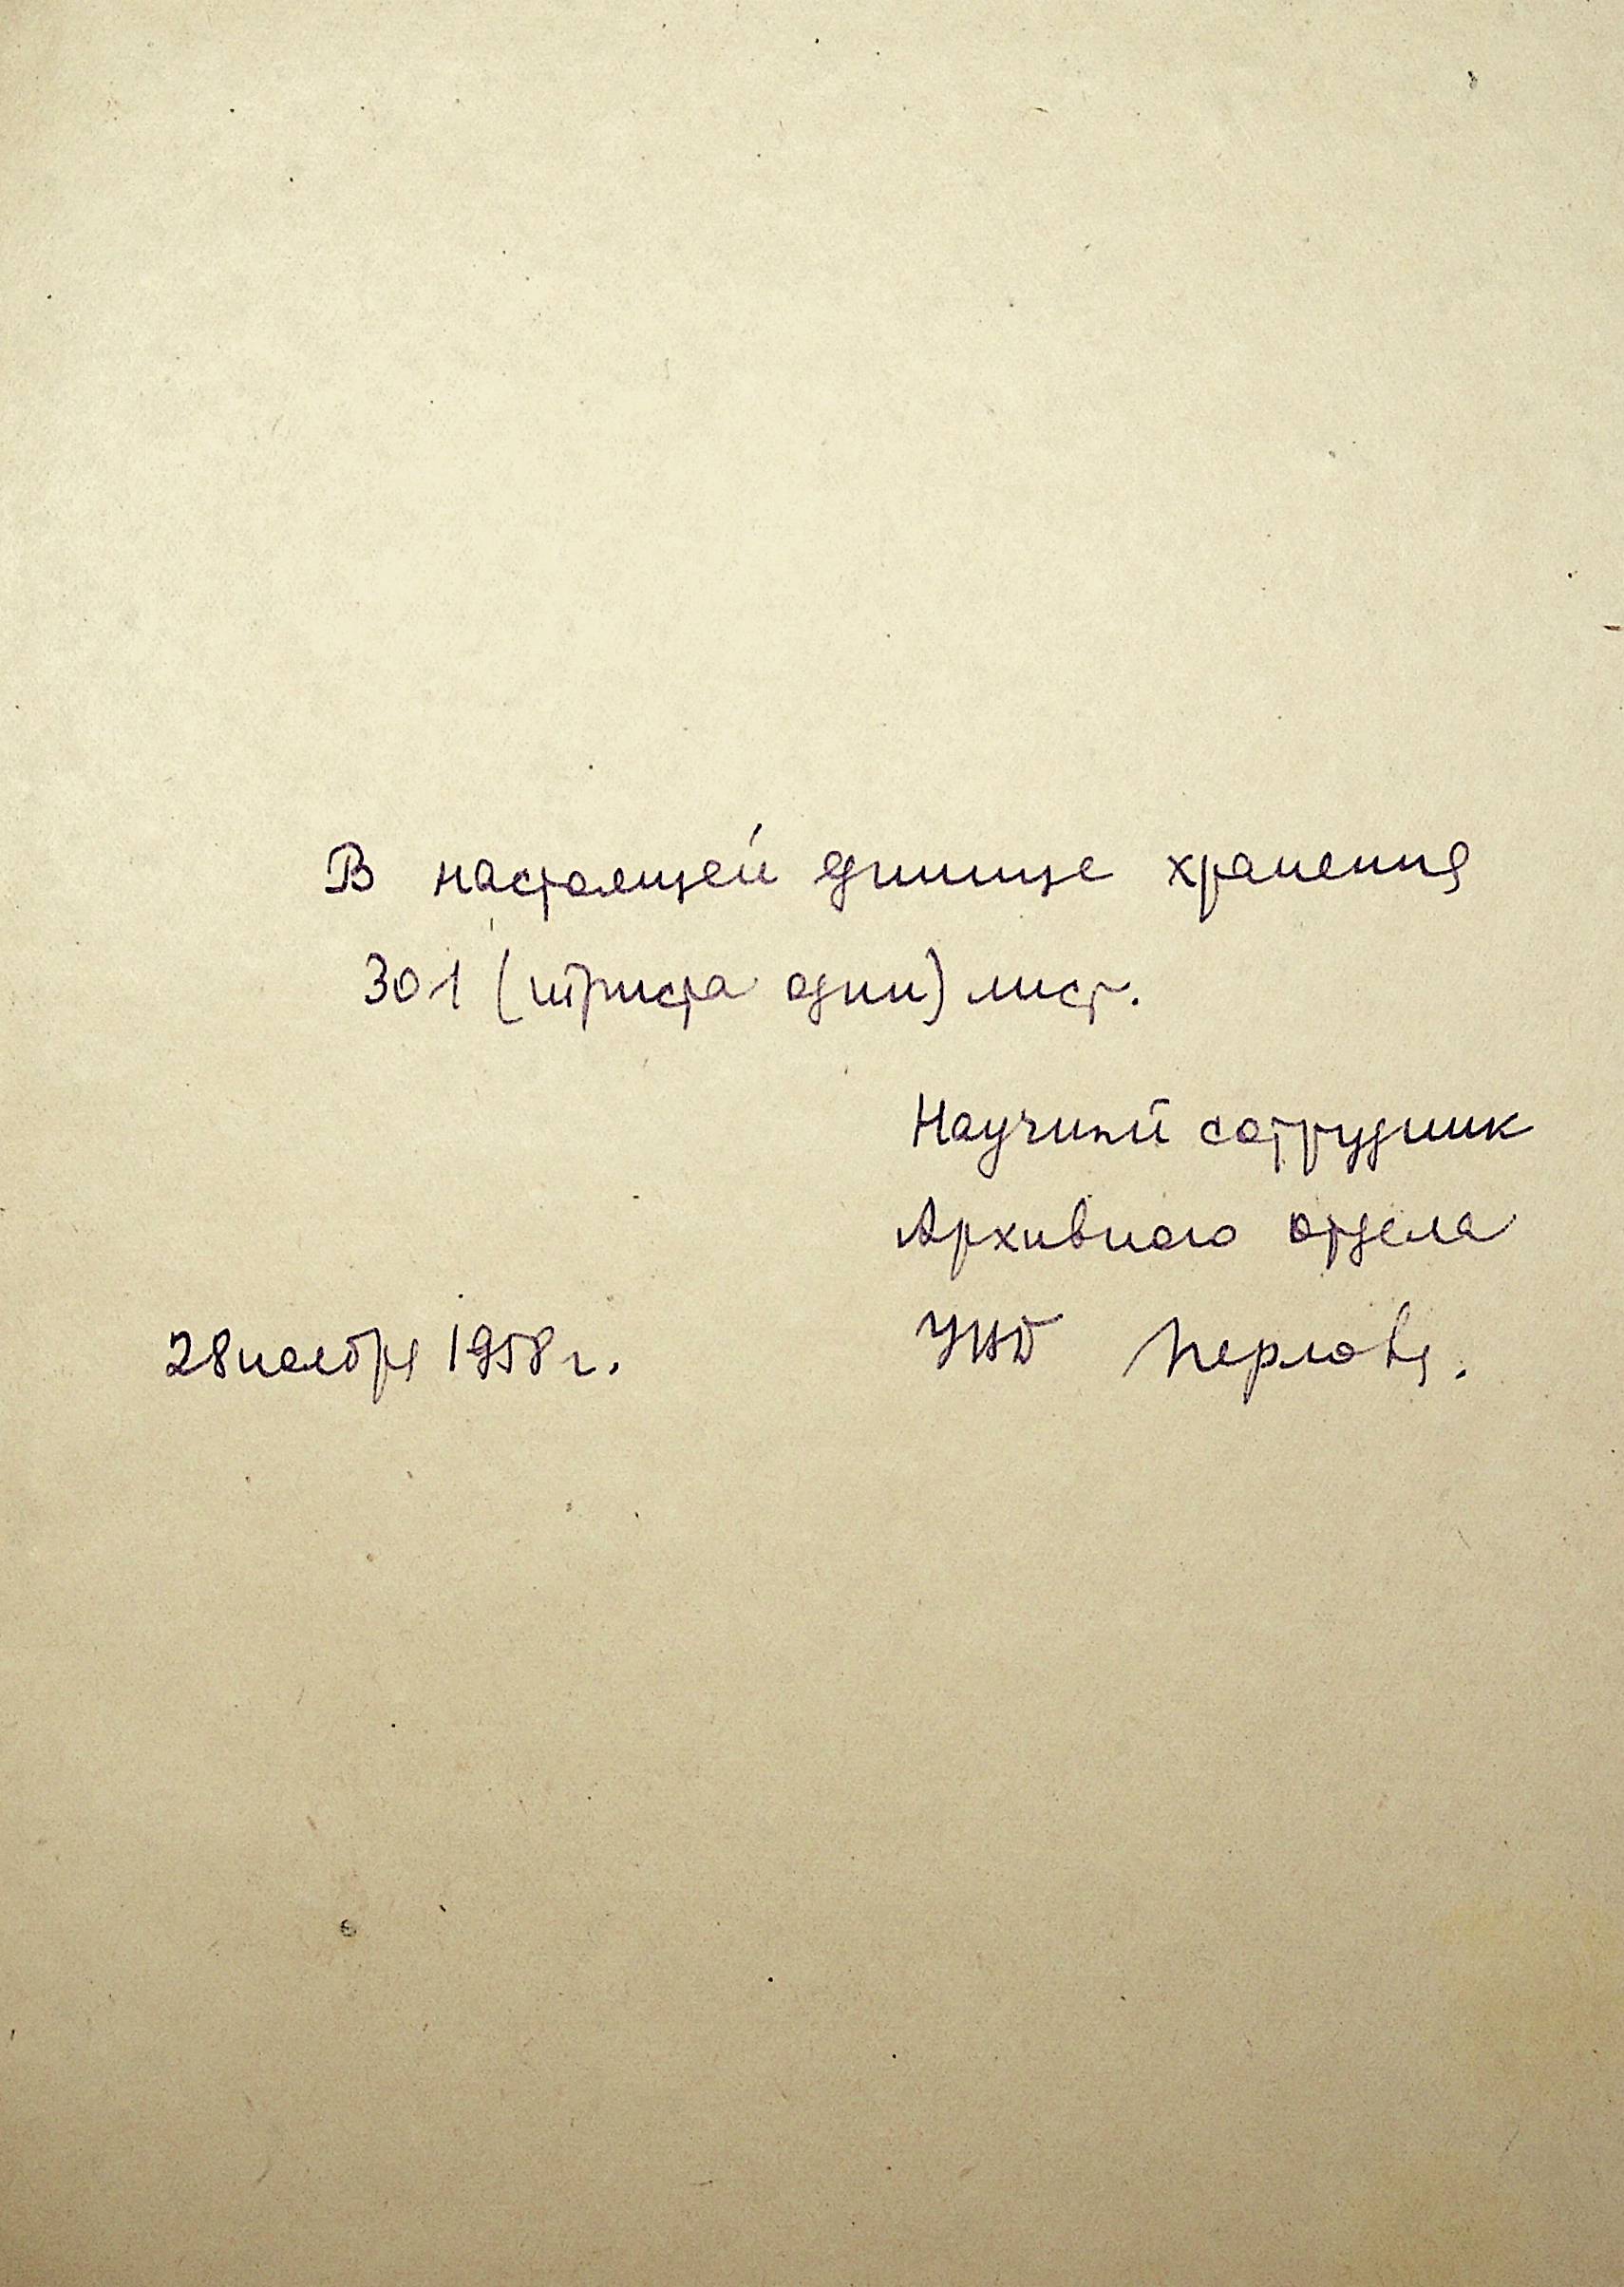 В настоящей единице хранения
301 (триста один) лист.
Научный сотрудник
Архивного отдела
28 ноября 1958 г. УВД Перлова.